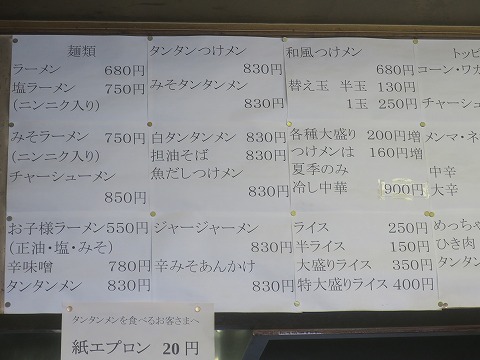 麺類
ラーメン 680円
塩ラーメン 750円
(ニンニク入り)
みそラーメン 750円
(ニンニク入り)
チャーシューメン
850円
お子様ラーメン 550円
(正油・塩・みそ)
辛味噌 780円
タンタンメン 830円
タンタンつけメン
830円
みそタンタンメン
830円
白タンタンメン 830円
担油そば 830円
魚だしつけメン
830円
ジャージャーメン
830円
辛みそあんかけ
830円
和風つけメン
680円
替え玉 半玉 130円
1玉 250円
各種大盛り 200円増
つけメンは 160円増
夏季のみ
冷し中華 900円
ライス 250円
半ライス 150円
大盛りライス 350円
特大盛りライス 400円
トッピ
コーン・ワカ
チャーシュ
メンマ・ネ
中辛
大辛
めっちゃ
ひき肉
タンタン
タンタンメンを食べるお客さまへ
紙エプロン 20円